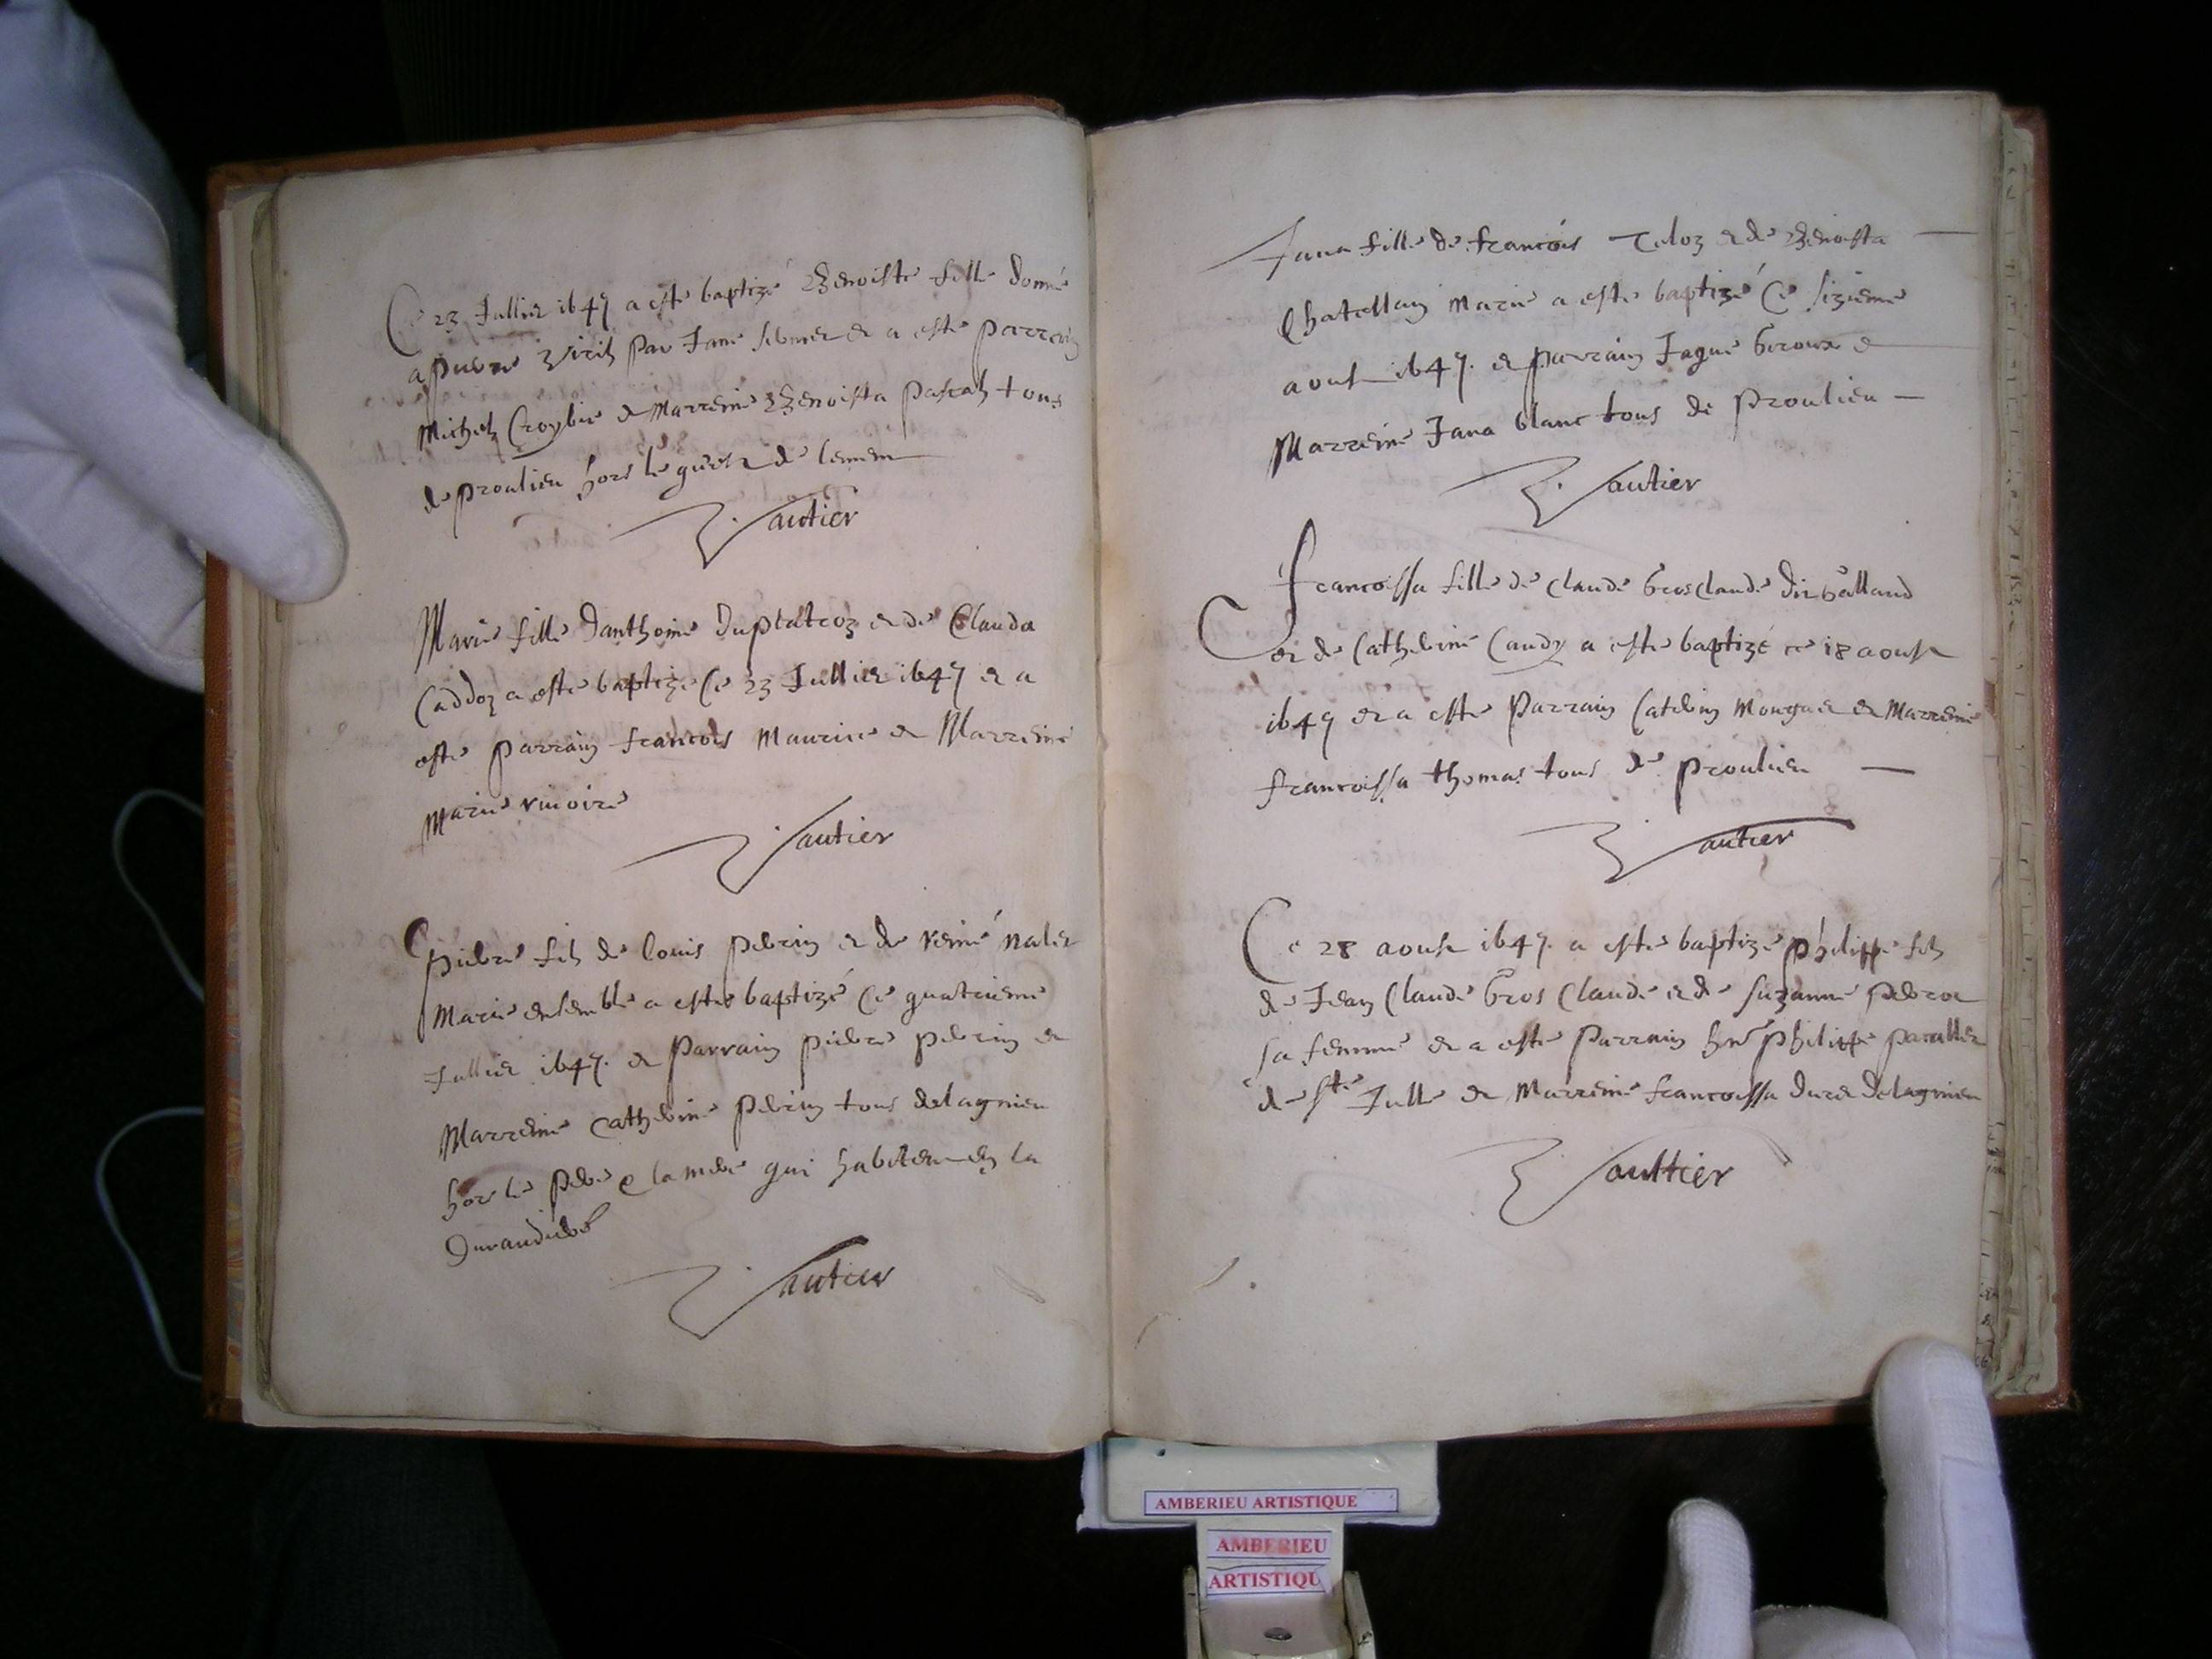 Ce 23 Jullier 1647 a esté baptizé Benoiste fille donné
a pierre par Jane et a esté parrain
Michel Croybie et Marreine Benoista pascal tous
de proulieu hors le de
Gautier
Marie fille danthoine duplatroz et de Clauda
Caddoz a esté baptizé Ce 23 Jullier 1647 et a
esté parrain francois Maurice et Marreine
Marie vivoire
Gautier
pierre fils de Louis perrin et de reine
Marié ensemble a esté baptizé Ce quatrieme
Jullier 1647. et parrain pierre perrin et
Marreine Catherine perrin tous delagnieu
hors le pere e la mere qui habitent en la
Gautier
Jana fille de francois Teloz et de Benoista
Chatellain Marié a esté baptizé Ce sizieme
aoust 1647. et parrain Jaque Giroux e
Marreine Jana blanc tous de proulieu
Gautier
francoissa fille de Claude GrosClaude dit balland
et de Catherine Caudy a esté baptizé ce 18 aoust
1647 et a esté parrain et Marreine
francoissa thomas tous de proulieu
Gautier
Ce 28 aoust 1647. a esté baptizé philippe fils
de Jean Claude Gros Claude et de suzanne
sa femme et a esté parrain hnr philippe
de ste Julle et Marreine francoissa duret delagnieu
Gaultier
AMBERIEU ARTISTIQUE
AMBERIEU
ARTISTIQU